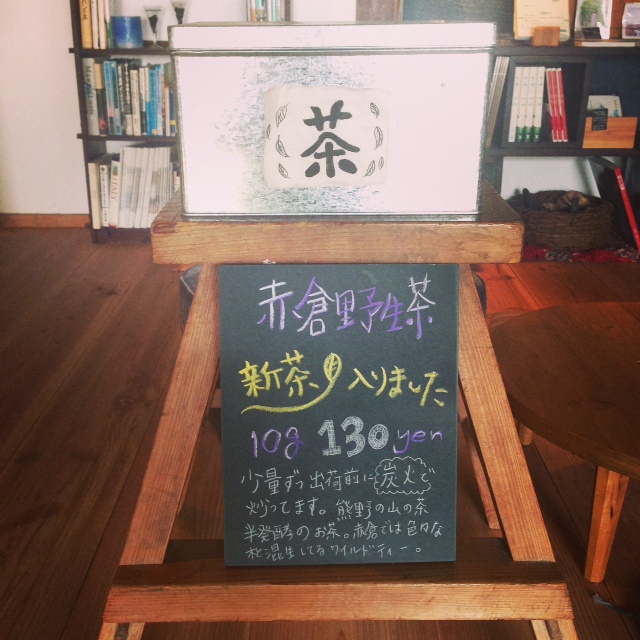 茶
赤倉野生茶
新茶、入りました
10g 130yen
少量ずつ出荷前に炭火で
炒ってます。熊野の山の茶
半発酵のお茶。赤倉では色々な
木と混生してるワイルドティー。